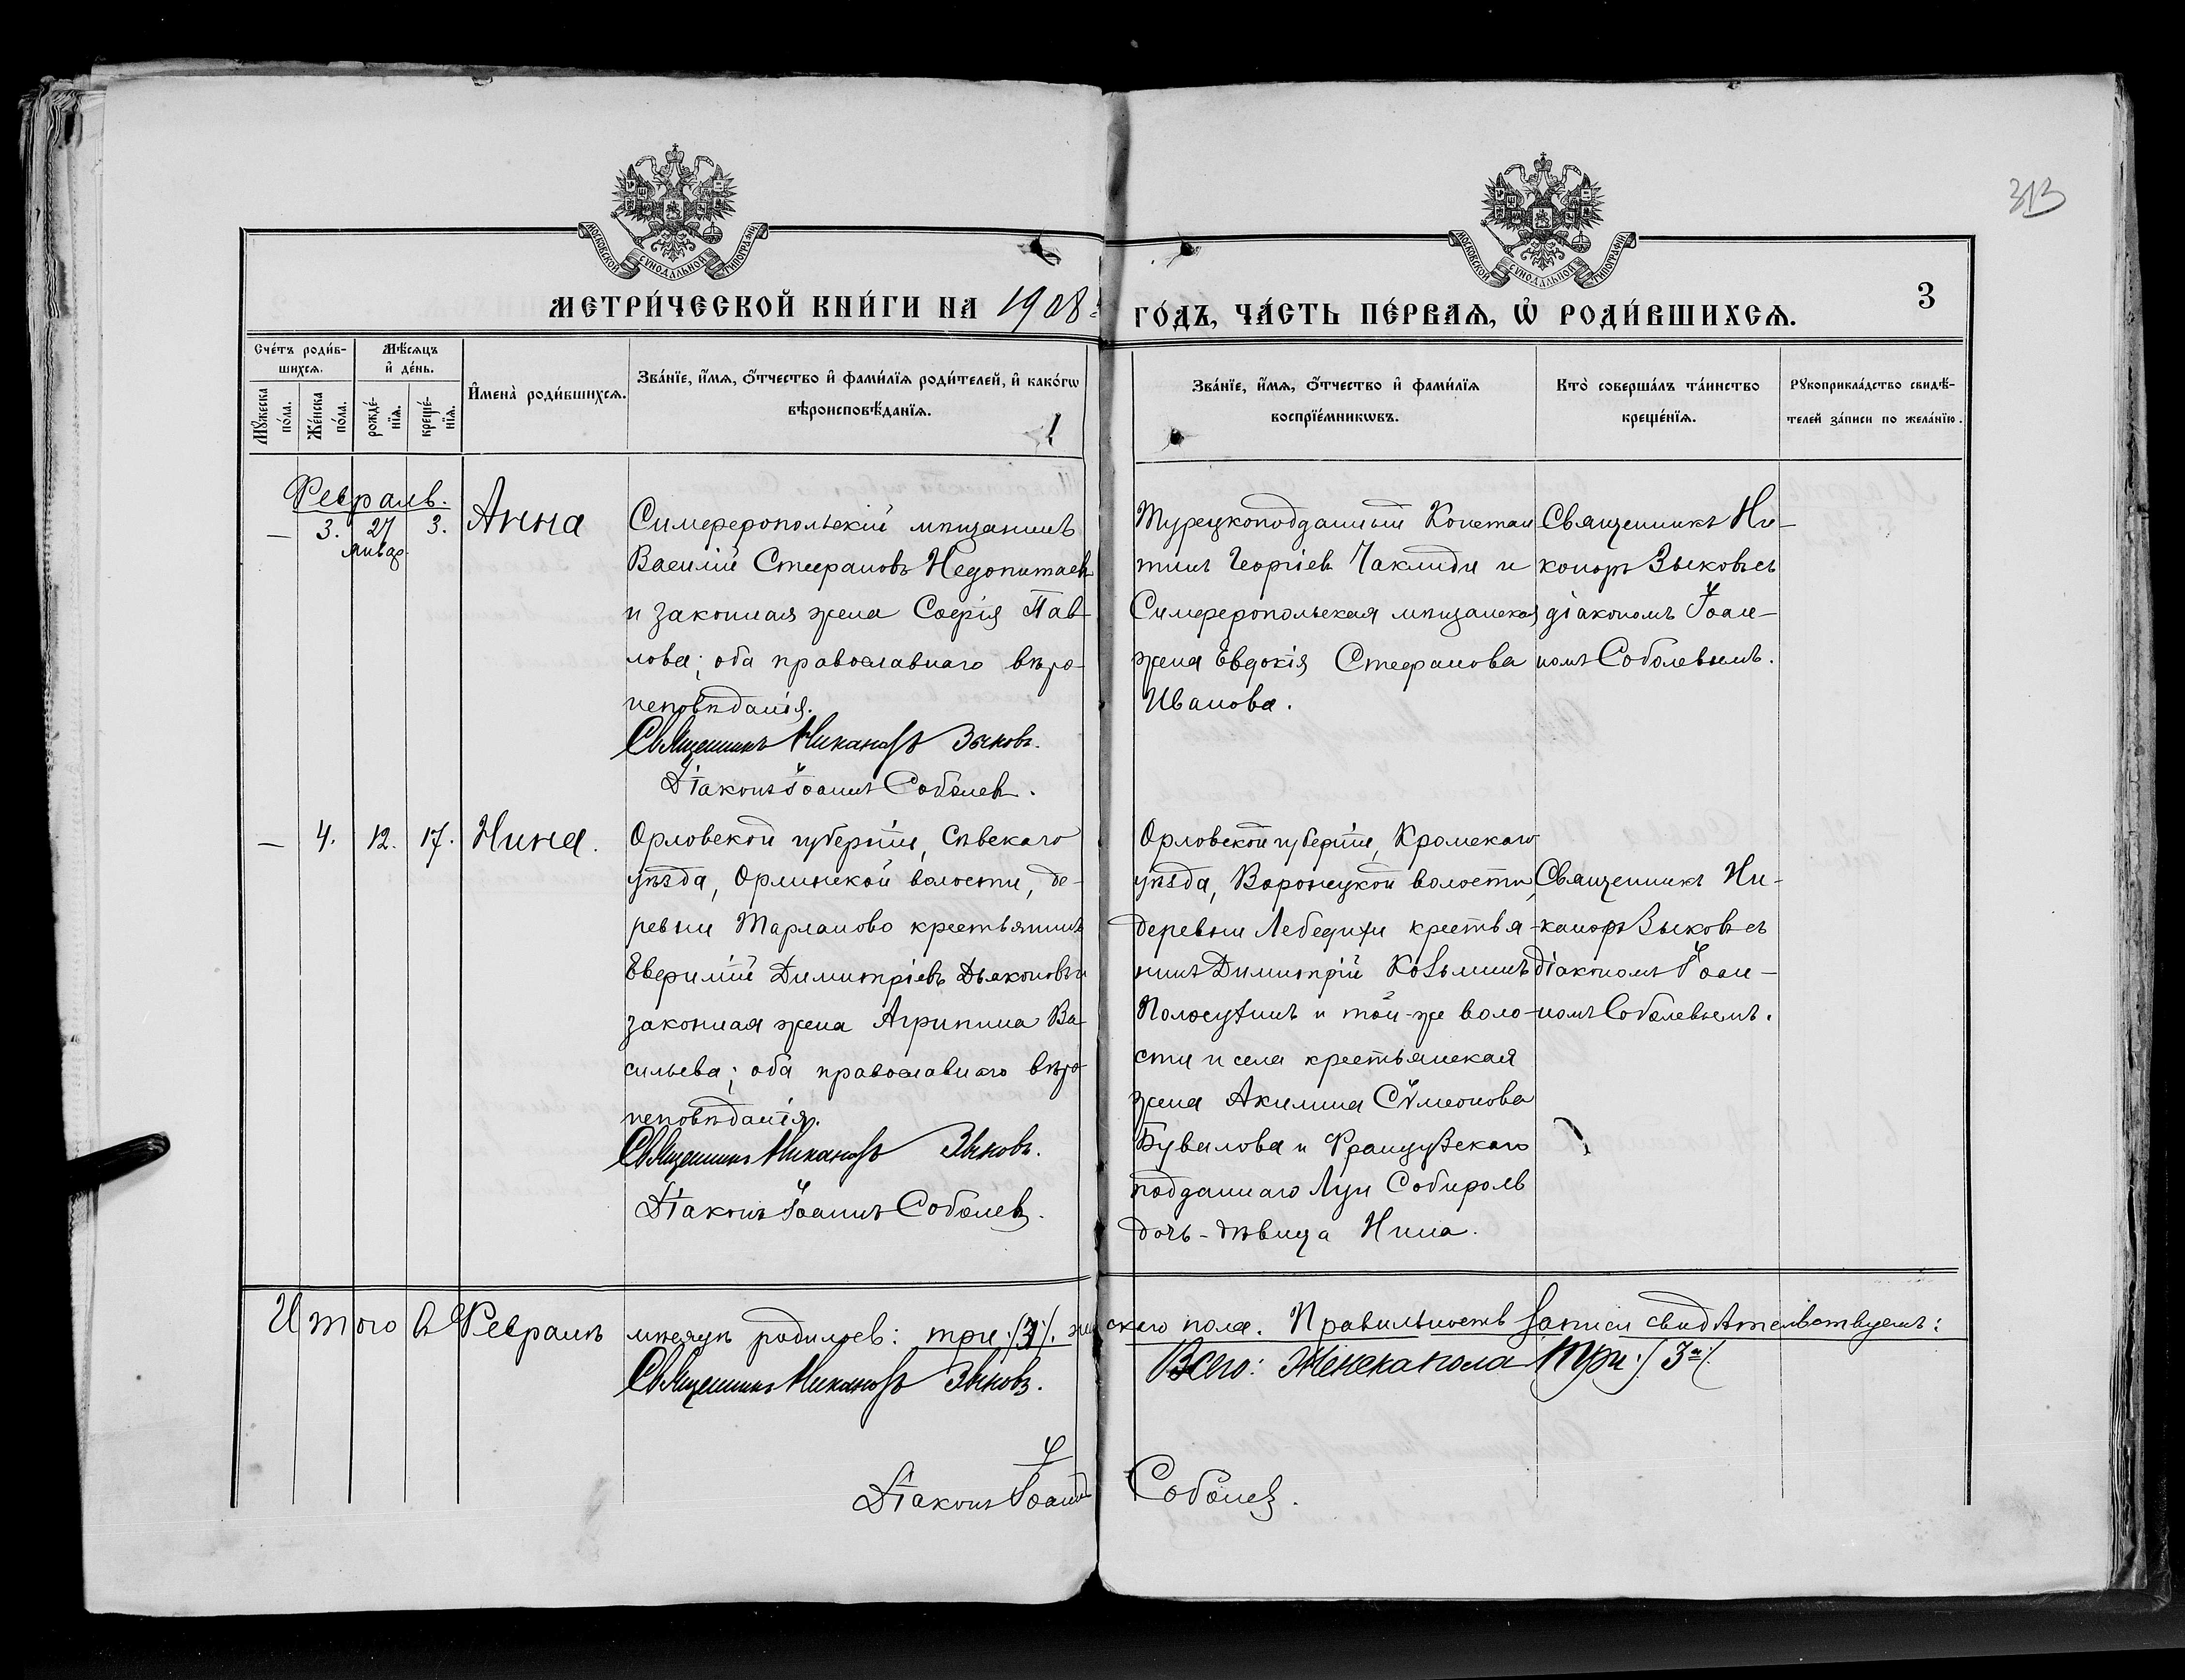 313
МОСКОВСКОЙ СУНОДАЛЬНОЙ ТИПОГРАФІИ
МОСКОВСКОЙ СУНОДАЛЬНОЙ ТИПОГРАФІИ
МЕТРИ́ЧЕСКОЙ КНИ́ГИ НА 1908 ГО́ДЪ, ЧА́СТЬ ПЕ́РВАѦ, Ѡ҆ РОДИ́ВШИХСѦ.
3
Сче́тъ роди́в-
шихсѧ.
Мꙋ́жеска по́ла.
Же́нска по́ла.
Мѣ́сѧцъ
и҆ де́нь.
рожде́-
нїѧ.
креще́-
нїѧ.
И҆мена̀ роди́вшихсѧ.
Зва́нїе, и҆́мѧ, ѻ҆́тчество и҆ фами́лїѧ роди́телей, и҆ како́гѡ
вѣроисповѣ́данїѧ.
Зва́нїе, и҆́мѧ, ѻ҆́тчество и҆ фами́лїѧ
воспрїе́мникѡвъ.
Кто̀ соверша́лъ та́инство
креще́нїѧ.
Рꙋкоприкла́дство свидѣ́-
телей за́писи по жела́нїю.
Февраль.
— 3. 27 январ. 3. Анна
Симферопольскій мѣщанинъ
Василій Стефановъ Недопитаевъ
и законная жена Софія Пав-
лова; оба православнаго вѣро-
исповѣданія.
Священникъ Никаноръ Зыковъ.
Діаконъ Іоаннъ Соболевъ.
Турецкоподданный Констан-
тинъ Георгіевъ Чаклиди и
Симферопольская мѣщанская
жена Евдокія Стефанова
Иванова.
Священникъ Ни-
каноръ Зыковъ съ
діакономъ Іоан-
номъ Соболевымъ.
— 4. 12. 17. Нина.
Орловской губерніи, Сѣвскаго
уѣзда, Орлинской волости, де-
ревни Тарланово крестьянинъ
Евфимій Димитріевъ Дьяконовъ и
законная жена Агрипина Ва-
сильева; оба православнаго вѣро-
исповѣданія.
Священникъ Никаноръ Зыковъ.
Діаконъ Іоаннъ Соболевъ.
Орловской губерніи, Кромскаго
уѣзда, Воронецкой волости,
деревни Лебедихи крестья-
нинъ Димитрій Козьминъ
Полосухинъ и той-же воло-
сти и села крестьянская
жена Акилина Сѵмеонова
Бувалова и Французскаго
подданнаго Луи Собироль
дочь-дѣвица Нина.
Священникъ Ни-
каноръ Зыковъ съ
діакономъ Іоан-
номъ Соболевымъ.
Итого въ Февралѣ мѣсяцѣ родилось: три /3/. женскаго пола. Правильность записи свидѣтельствуемъ:
Священникъ Никаноръ Зыковъ.
Всего: Женска пола три /3/
Діаконъ Іоаннъ Соболевъ.